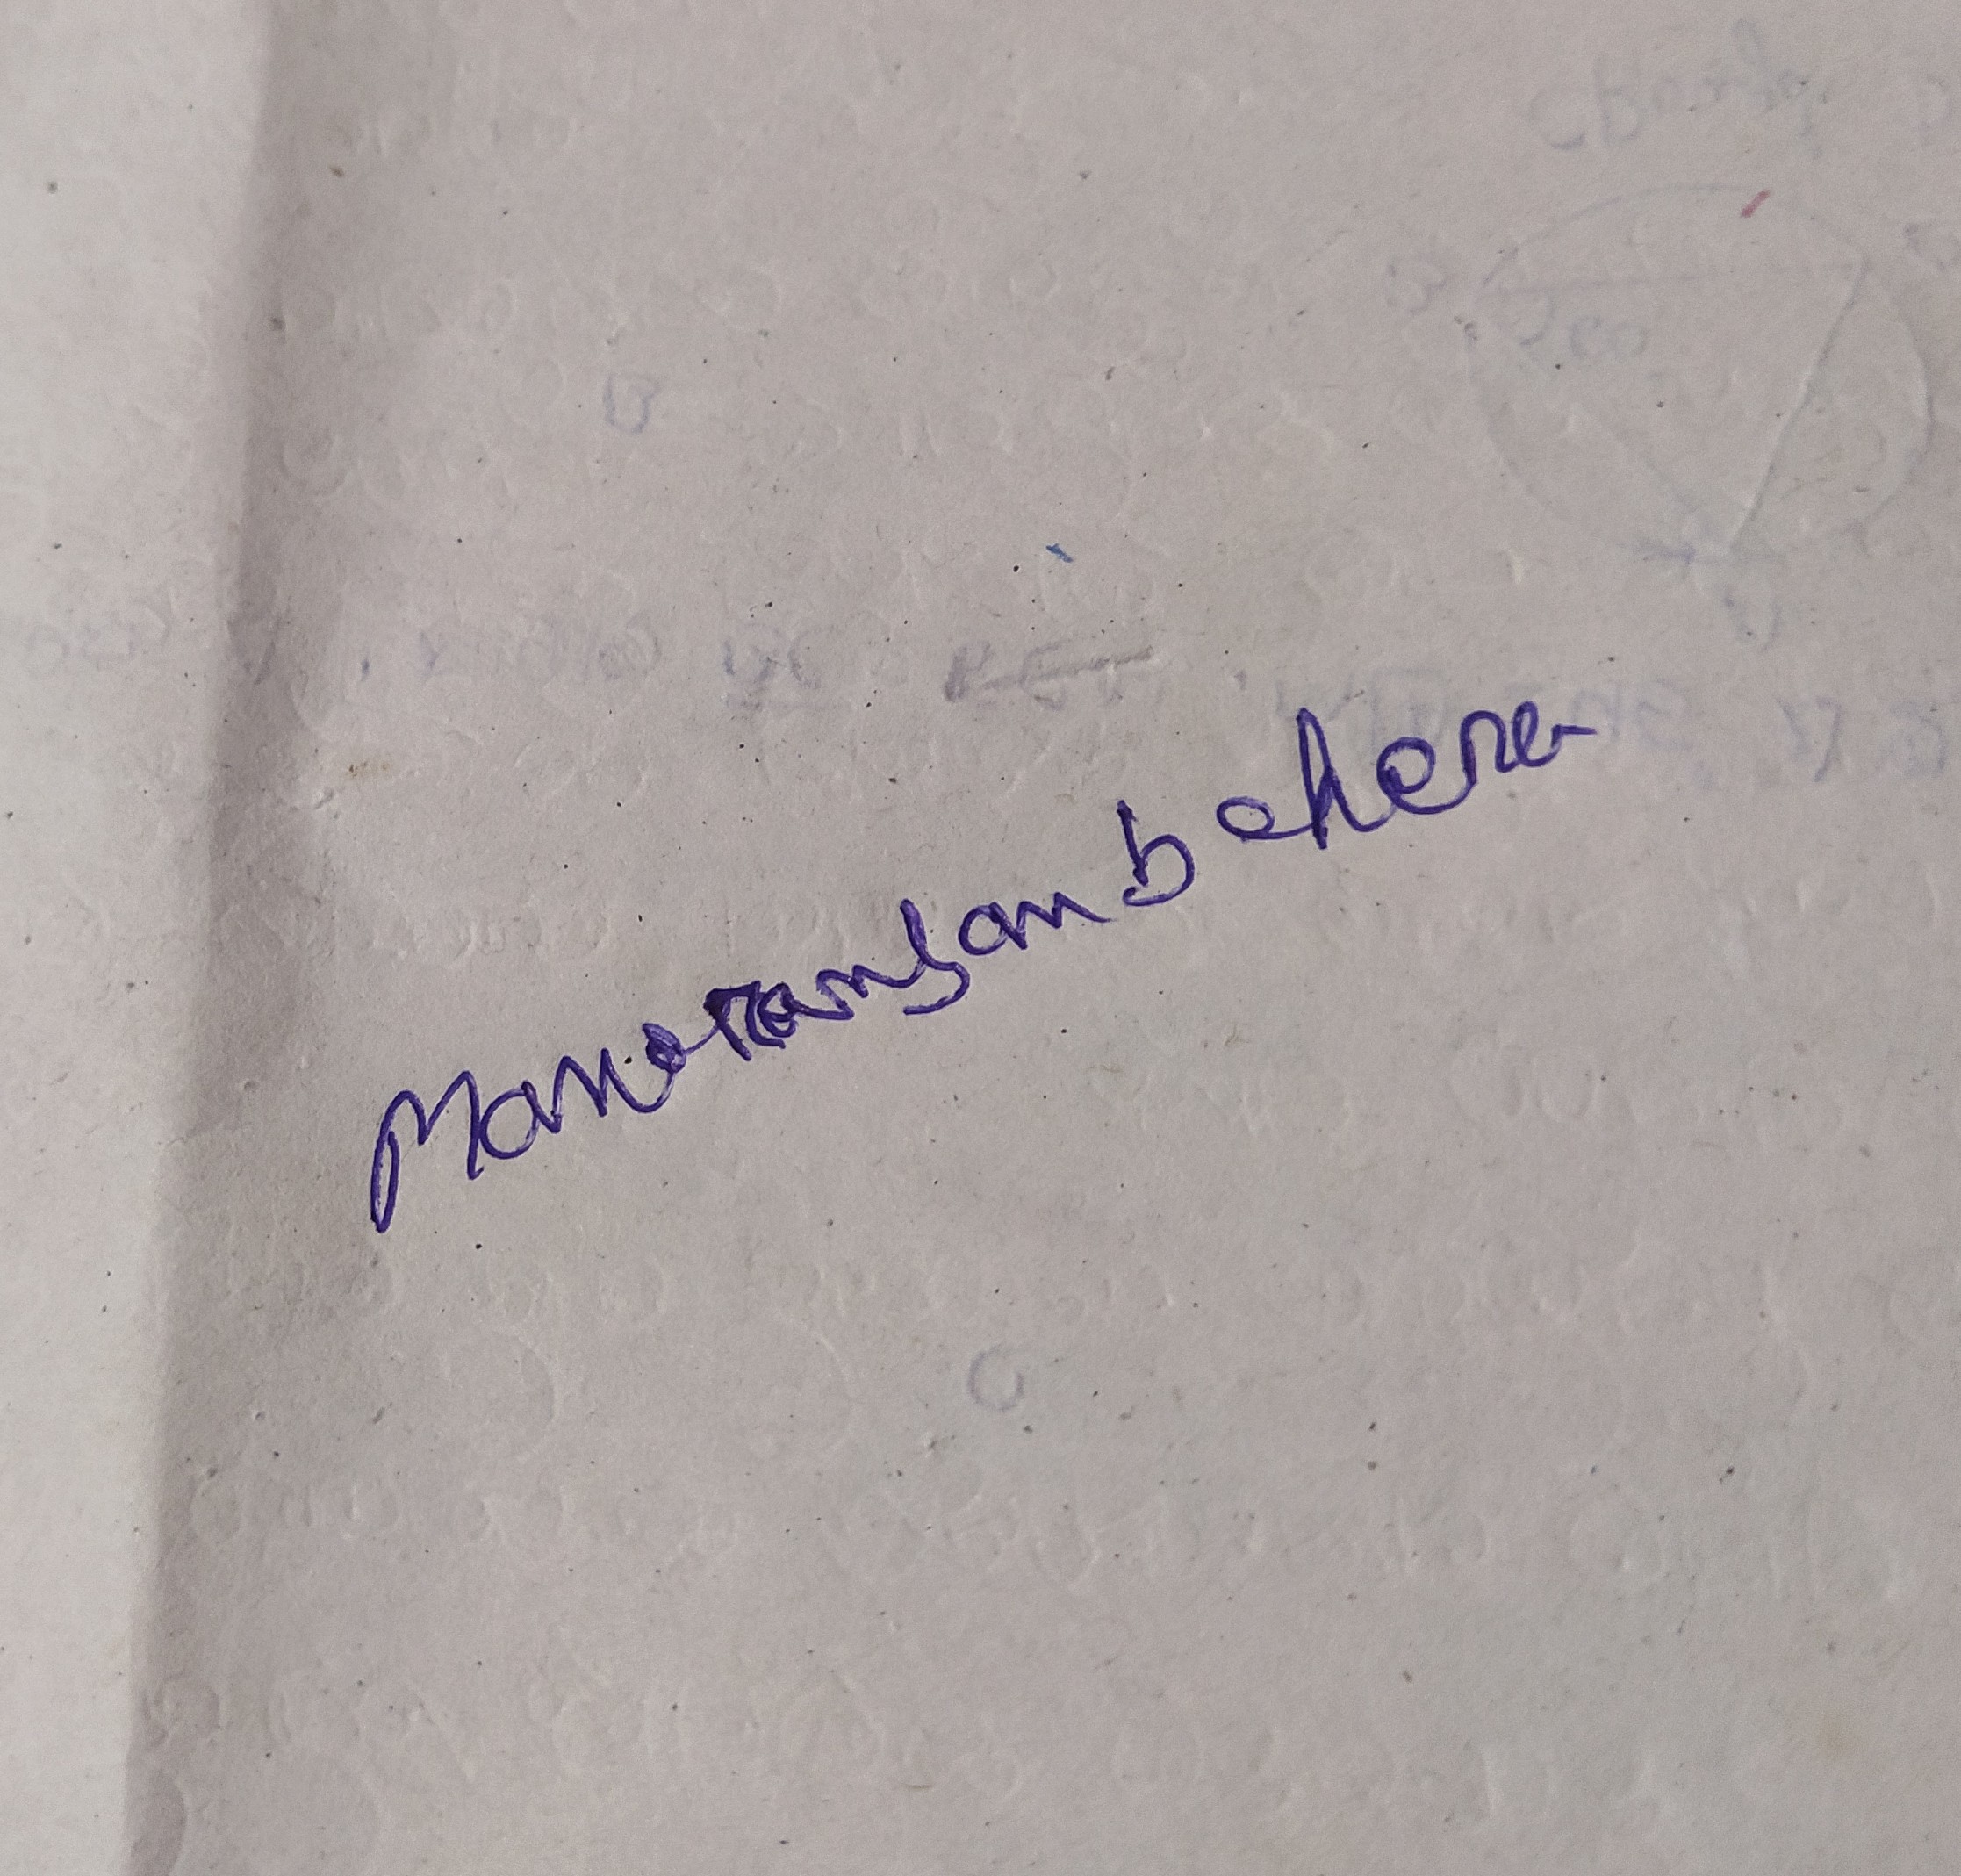 Manoranjan behera